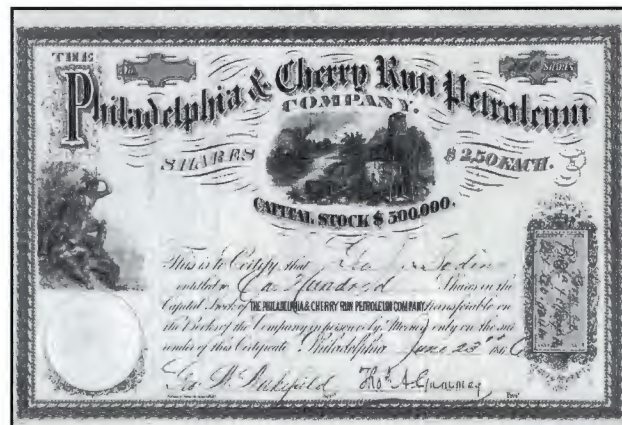 THE
Philadelphia & Cherry Run Petroleum
COMPANY.
No.
Shares
SHARES $2.50 EACH.
CAPITAL STOCK $500,000.
This is to Certify that
entitled to One Hundred Shares in the
Capital Stock of THE PHILADELPHIA & CHERRY RUN PETROLEUM COMPANY, transferable on
the Books of the Company in person or by Attorney only on the sur
render of this Certificate Philadelphia June 23rd 186
Geo. W. Wakefield Thos. A.
Prest.